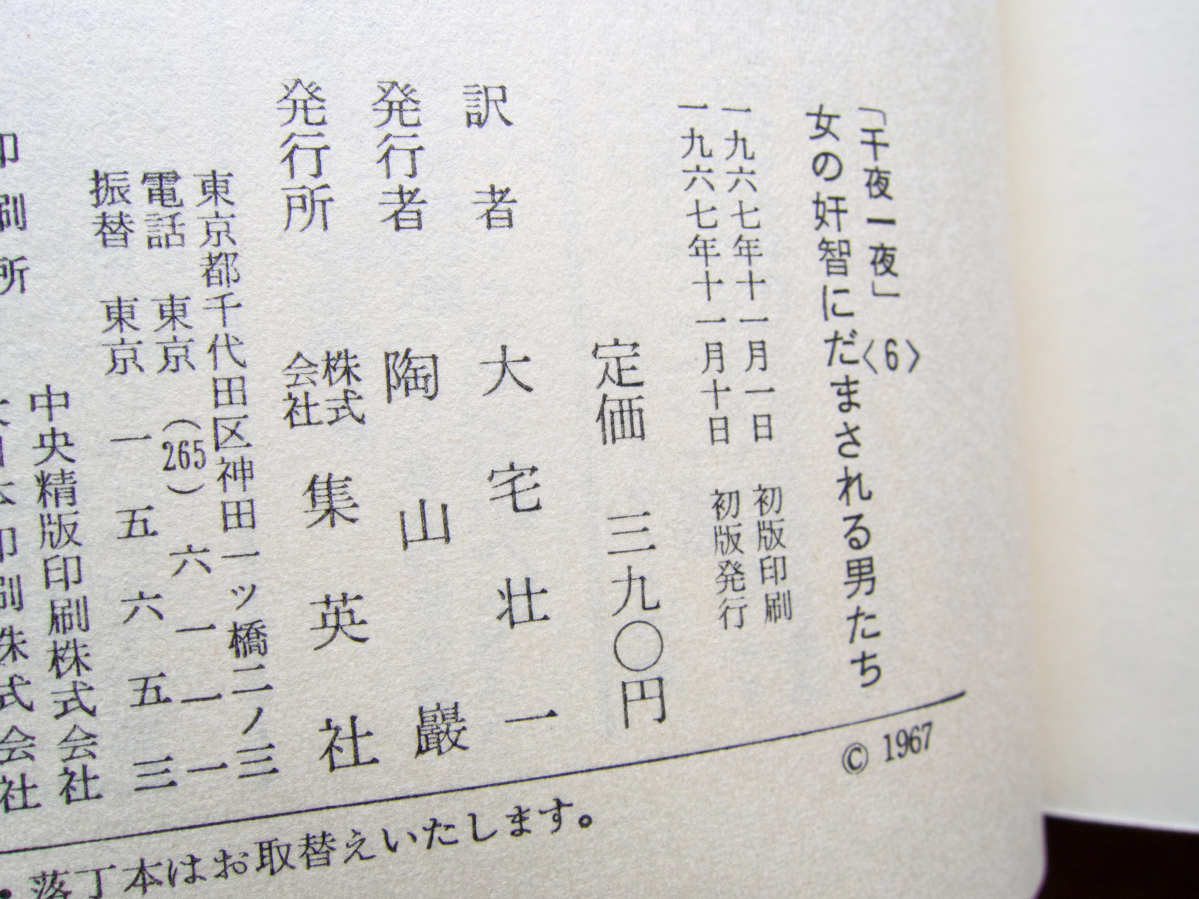 「千夜一夜」〈6〉
女の奸智にだまされる男たち
一九六七年十一月一日 初版印刷
一九六七年十一月十日 初版発行
定価 三九〇円
訳者 大宅壮一
発行者 陶山巖
発行所 株式会社 集英社
東京都千代田区神田一ッ橋二ノ三
電話 東京 (265) 六一一一
振替 東京 一五六五三
中央精版印刷株式会社
印刷所 大日本印刷株式会社
© 1967
・落丁本はお取替えいたします。